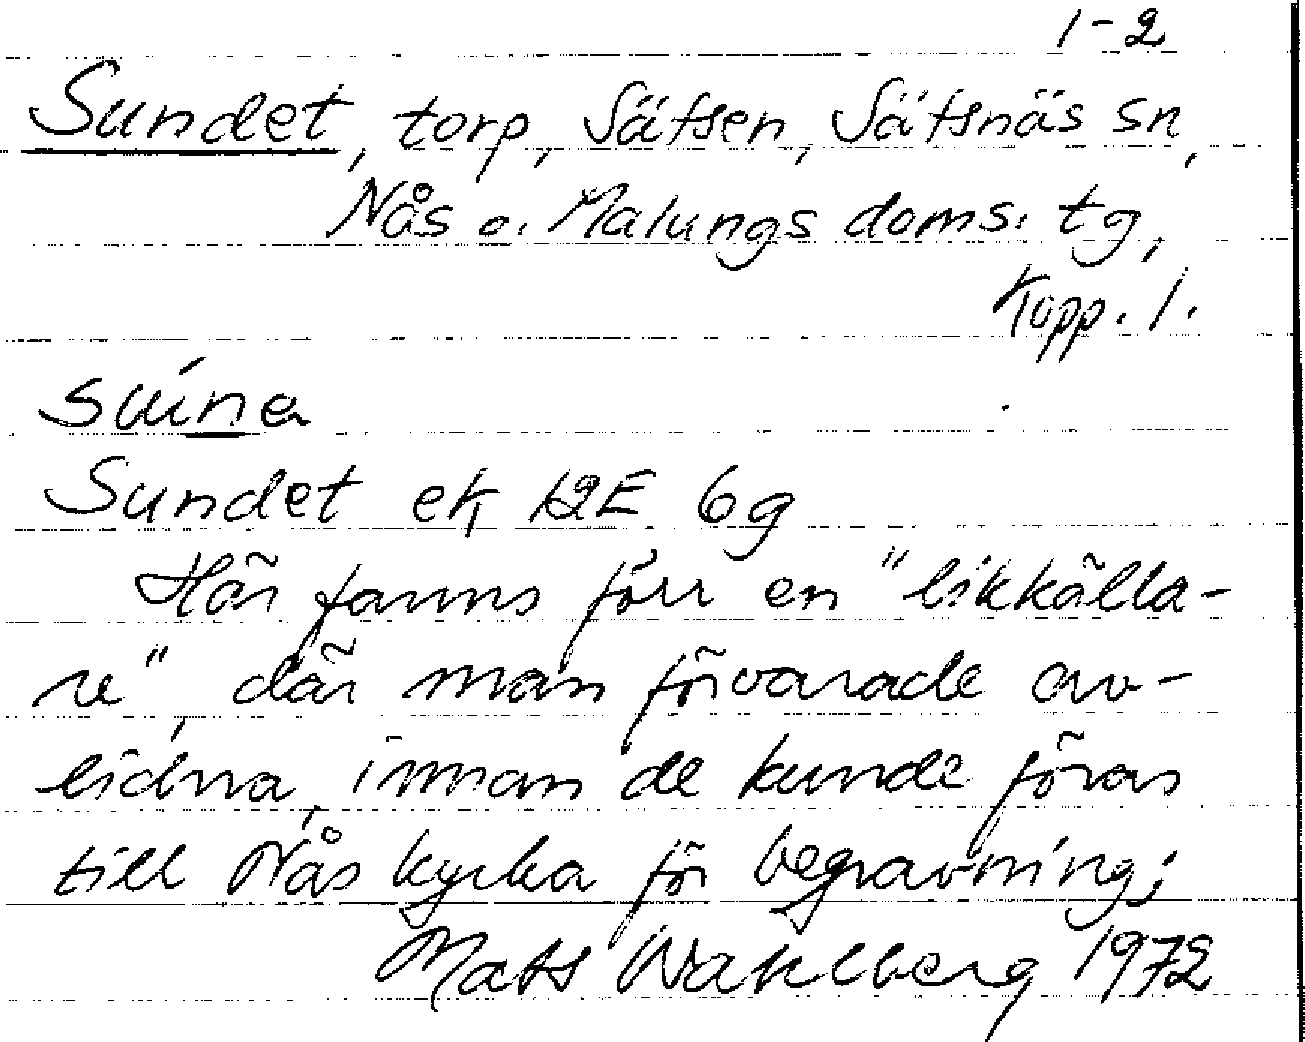 1-2
Sundet, torp, Säfsen, Säfsnäs sn,
Nås o. Malungs doms. tg,
Kopp. l.
Sundet ek 12E 6g
Här fanns förr en "likkälla-
re", där man förvarade av-
lidna, innan de kunde föras
till Nås kyrka för begravning;
Mats Wahlberg 1972